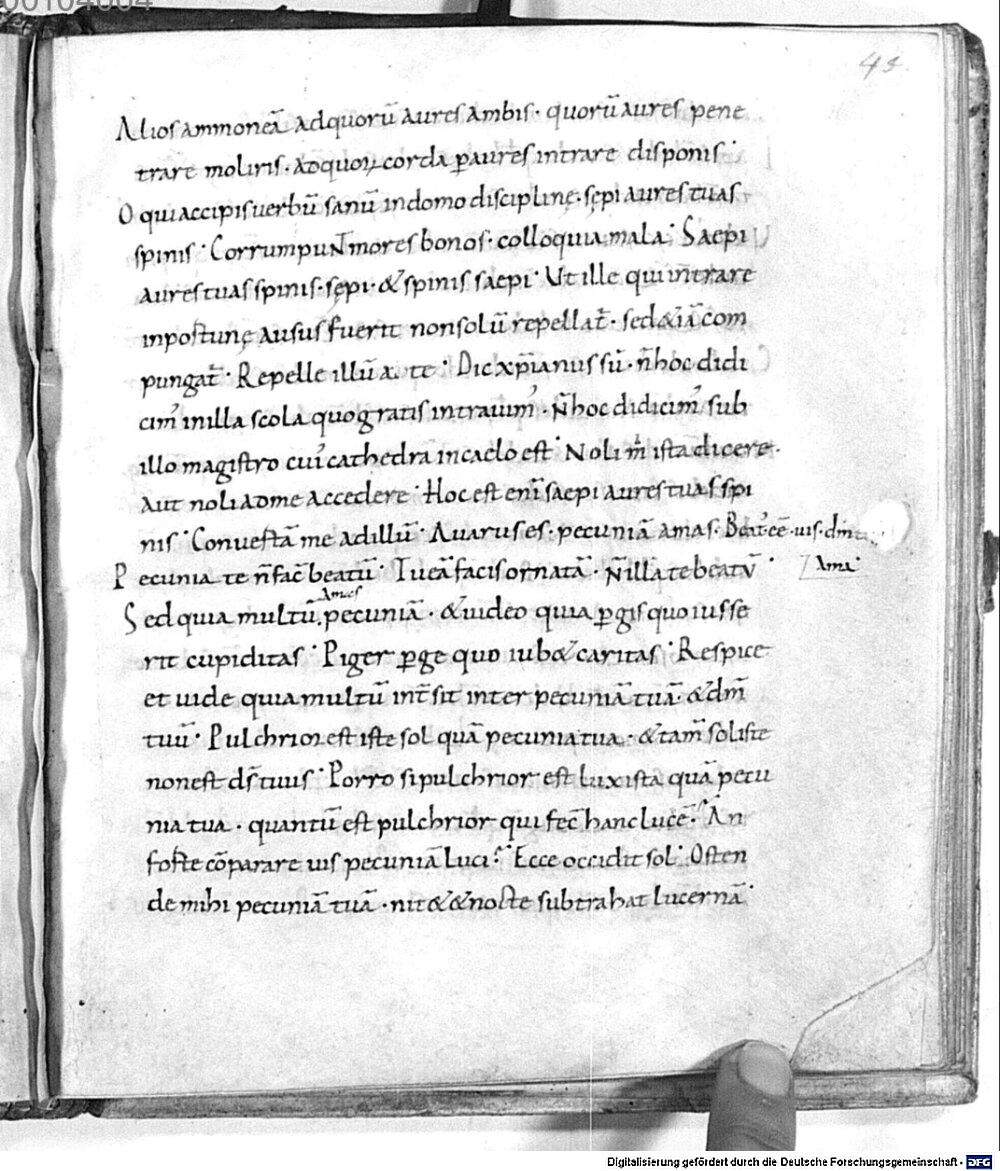 00104004
45.
Alios ammoneā ad quorū aures ambis · quorū aures pene
trare moliris · ad quoꝝ corda ꝑ aures intrare disponis ·
O qui accipis uerbū sanū in domo disciplinę · sępi aures tuas
spinis · Corrumpunt mores bonos · colloquia mala · Saepi
aures tuas spinis · sępi · & spinis saepi · Ut ille qui intrare
inportunę ausus fuerit non solū repellat̄ · sed & iā com
pungat̄ · Repelle illū a te · Dic xp̄ianus sū · n̄ hoc didi
cimꝰ in illa scola quo gratis intrauimꝰ · N̄ hoc didicimꝰ sub
illo magistro cuiꝰ cathedra in caelo est · Noli m̄ ista dicere ·
aut noli ad me accedere · Hoc est enī saepi aures tuas spi
nis · Conuestā me ad illū · Auarus es · pecuniā amas · Beatꝰ ēē · uis · dm̄
Pecunia te n̄ fac̄ beatū · Tu eā facis ornatā · N̄ illa te beatū · Ama ·
Amas
Sed quia multū pecuniā · & uideo quia ꝑgis quo iusse
rit cupiditas · Piger ꝑge quo iub& caritas · Respice
et uide quia multū int̄sit inter pecuniā tuā · & dm̄
tuū · Pulchrior est iste sol quā pecunia tua · & tam̄ sol iste
non est ds̄ tuus · Porro si pulchrior est lux ista quā pecu
nia tua · quantū est pulchrior qui fec̄ hanc lucē · An
forte cōparare uis pecuniā luci · Ecce occidit sol · Osten
de mihi pecuniā tuā · nit& & nocte subtrahat lucernā ·
Digitalisierung gefördert durch die Deutsche Forschungsgemeinschaft - DFG